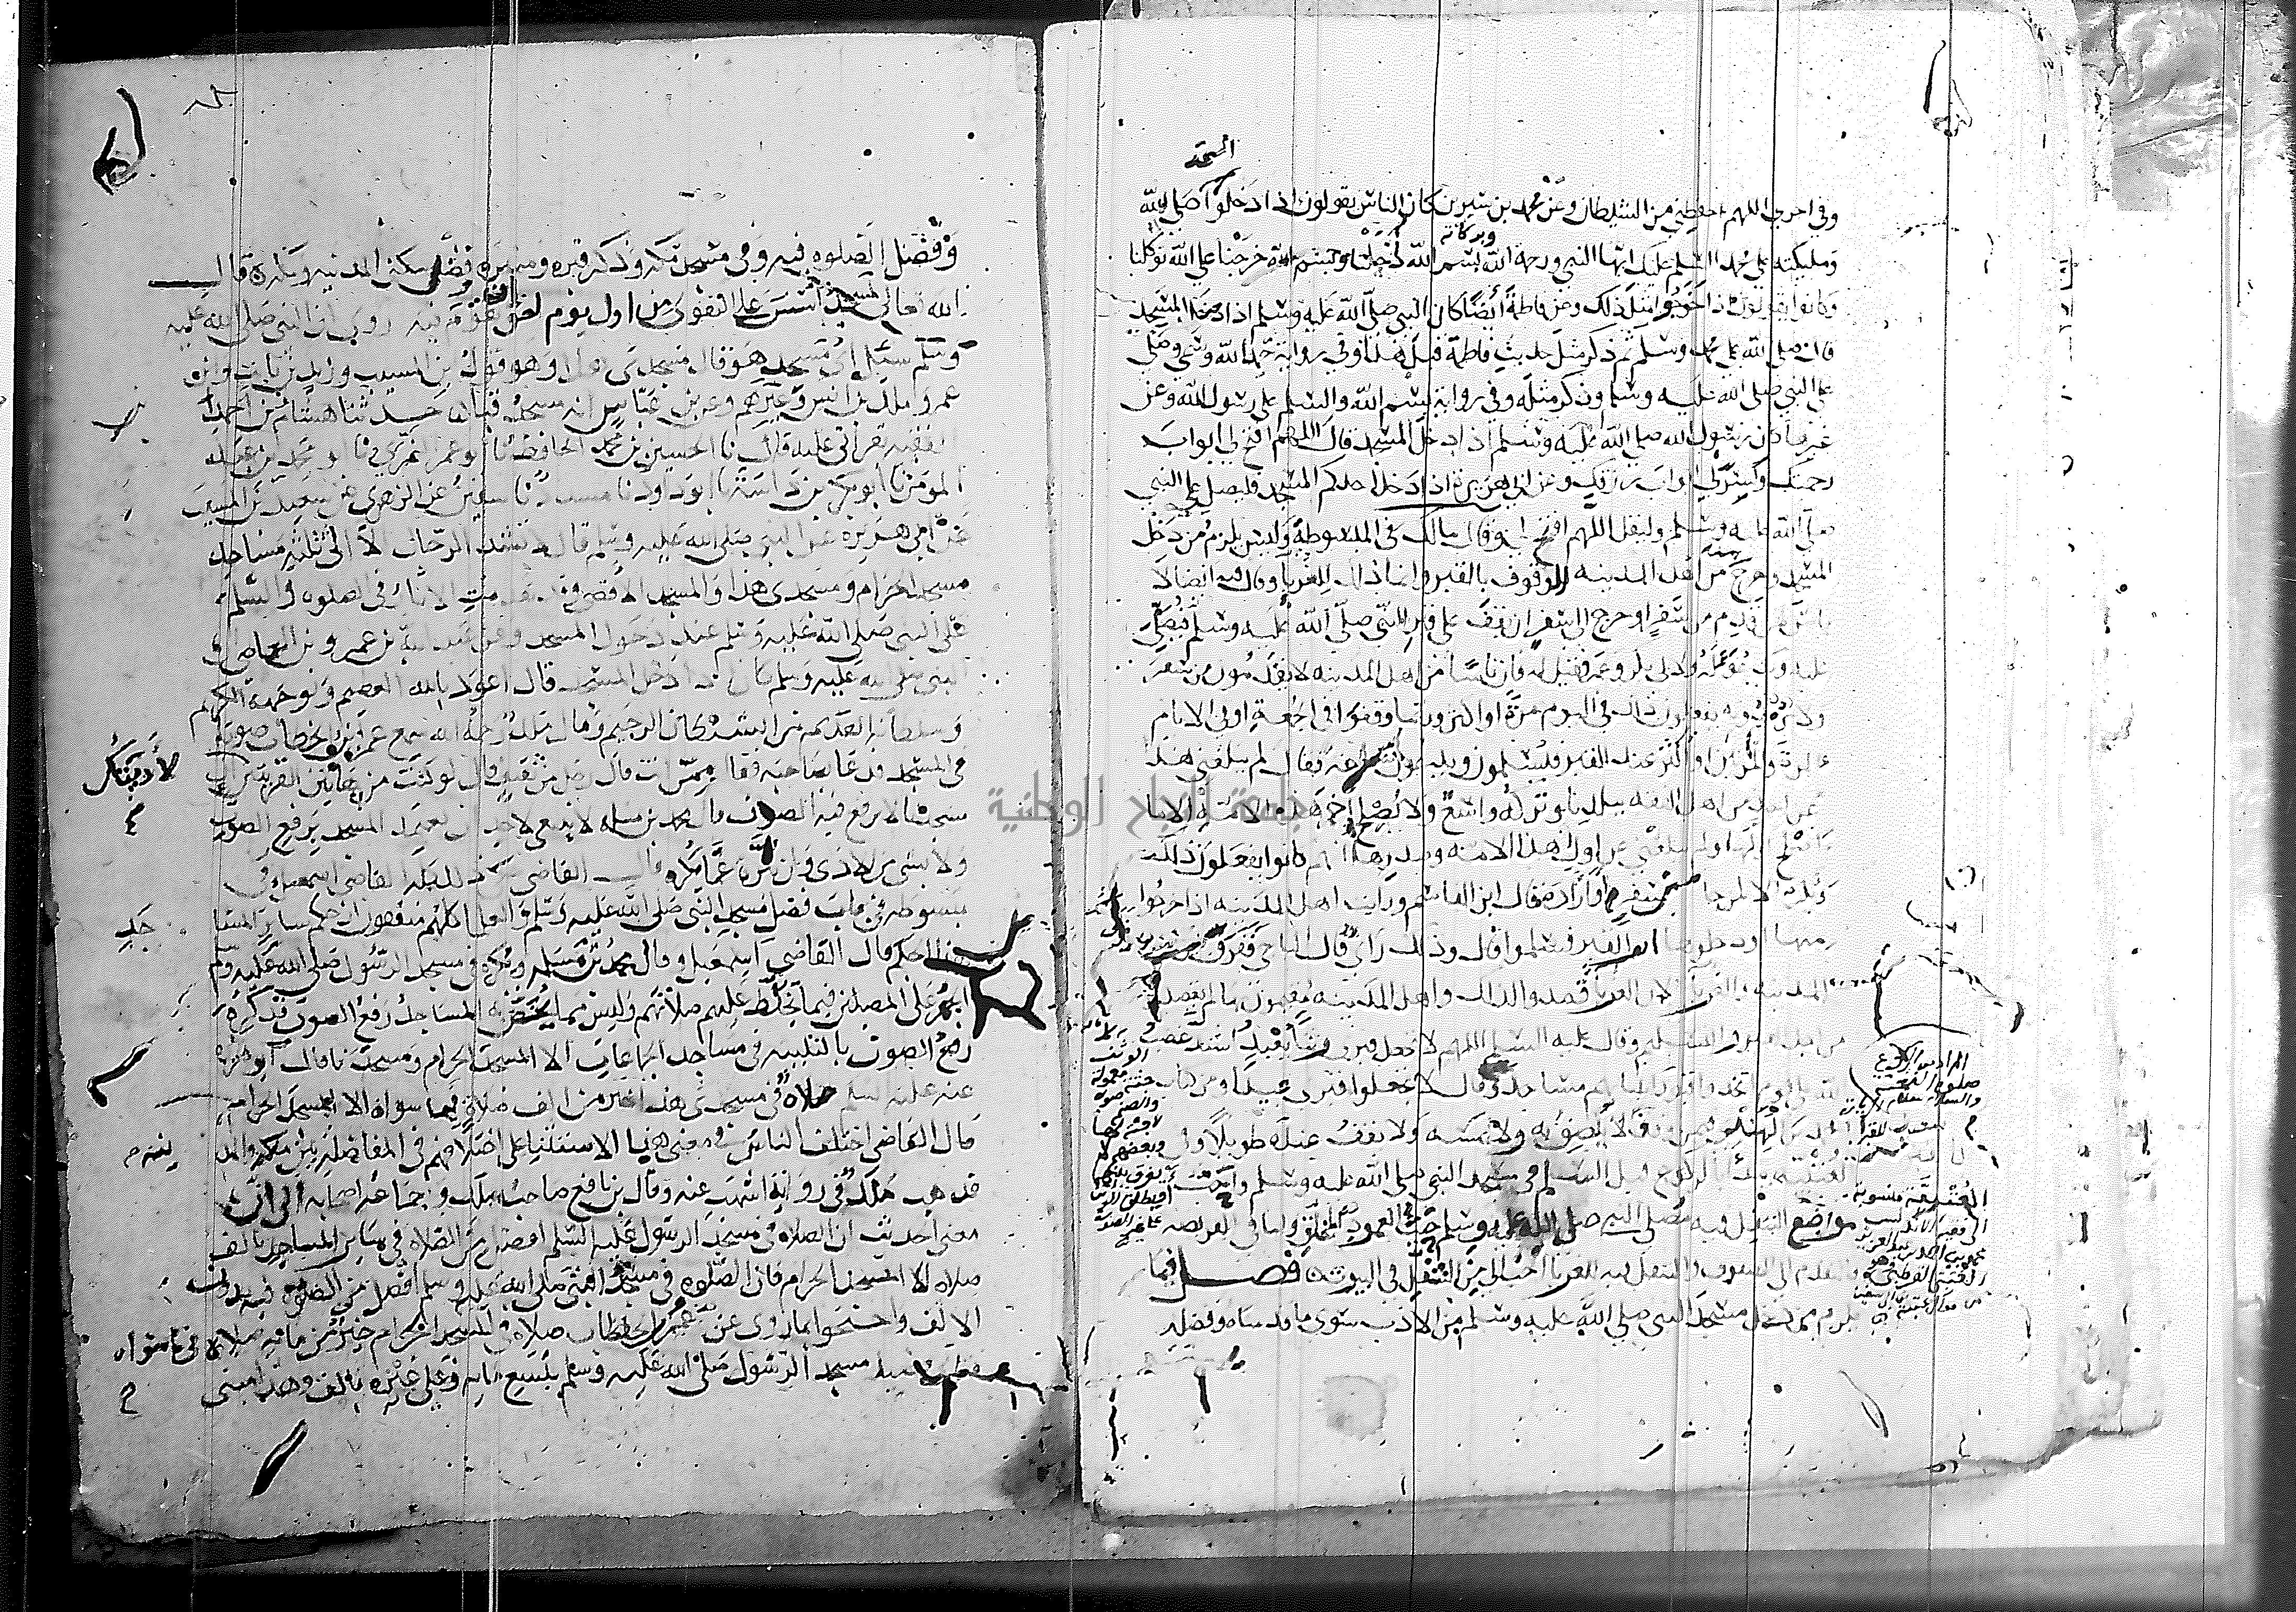 المسجد
وفي اخرى اللهم احفظني من الشيطان وعن محمد بن سيرين كان الناس يقولون اذا دخلوا صلى الله
ومليكته على محمد السلم عليك ايها النبي ورحمة الله وبركاته بسم الله دخلنا وبسم الله خرجنا على الله توكلنا
وكانوا يقولون اذا خرجوا مثل ذلك وعن فاطمة ايضا كان النبي صلى الله عليه وسلم اذا دخل المسجد
قال صلى الله على محمد وسلم ثم ذكر مثل حديث فاطمة قبل هذا وفي رواية حمد الله وسمى وصلى
على النبي صلى الله عليه وسلم وذكر مثله وفي رواية بسم الله والسلم على رسول الله وعن
غيرها كان رسول الله صلى الله عليه وسلم اذا دخل المسجد قال اللهم افتح لي ابواب
رحمتك ويسر لي ابواب رزقك وعن ابي هريرة اذا دخل احدكم المسجد فليصل على النبي
صلى الله عليه وسلم وليقل اللهم افتح لي وقال مالك في المبسوطة وليس يلزم من دخل
المسجد وخرج منه من اهل المدينه الوقوف بالقبر وانما ذلك للغربا وقال فيه ايضا لا
باس لمن قدم من سفر او خرج الى سفر ان يقف على قبر النبي صلى الله عليه وسلم فيصلي
عليه ويدعو له ولابي بكر وعمر فقيل له فان ناسا من اهل المدينه لا يقدمون من سفر
ولا يريدونه يفعلون ذلك في اليوم مرة او اكثر وربما وقفوا في الجمعة او في الايام
المرة والمرتين او اكثر عند القبر فيسلمون ويدعون ساعة فقال لم يبلغني هذا
عن احد من اهل الفقه ببلدنا وتركه واسع ولا يصلح اخر هذه الامة الا ما
اصلح اولها ولم يبلغني عن اول هذه الامة وصدرها انهم كانوا يفعلون ذلك
ويكره الا لمن جا من سفر او اراده قال ابن القاسم ورايت اهل المدينه اذا خرجوا
منها او دخلوها اتوا القبر فسلموا قال وذلك راي قال الباجي ففرق بين
اهل المدينه والغربا لان الغربا قصدوا لذلك واهل المدينه مقيمون بها لم يقصدوها
من اجل القبر والتسليم وقال عليه السلم اللهم لا تجعل قبري وثنا يعبد اشتد غضب
الله على قوم اتخذوا قبور انبيائهم مساجد وقال لا تجعلوا قبري عيدا ومن كتاب
احمد بن سعيد الهندي فيمن وقف بالقبر لا يلصق به ولا يمسه ولا يقف عنده طويلا وفي
العتبية يبدأ بالركوع قبل السلم في مسجد النبي صلى الله عليه وسلم واحب
مواضع التنفل فيه مصلى النبي صلى الله عليه وسلم حيث العمود المخلق واما في الفريضه
فالتقدم الى الصفوف والتنفل فيه للغربا احب الي من التنفل في البيوت فصل فيما
يلزم من دخل مسجد النبي صلى الله عليه وسلم من الادب سوى ما قدمناه وفضله
وفضل الصلوه فيه وفي مسجد مكه وذكر قبره ومنبره وفضل سكنى المدينه ومكه قال
الله تعالى لمسجد اسس على التقوى من اول يوم احق ان تقوم فيه روي ان النبي صلى الله عليه
وسلم سئل اي مسجد هو قال مسجدي هذا وهو قول بن المسيب وزيد بن ثابت وابن
عمر وملك بن انس وغيرهم وعن بن عباس انه مسجد قبا حدثنا هشام بن احمد
الفقيه بقراتي عليه قال نا الحسين بن محمد الحافظ نا ابو عمر النمري نا ابو محمد بن عبد
المومن نا ابو بكر بن داسة نا ابو داود نا مسدد نا سفين عن الزهري عن سعيد بن المسيب
عن ابي هريرة عن النبي صلى الله عليه وسلم قال لا تشد الرحال الا الى ثلثة مساجد
مسجد الحرام ومسجدي هذا والمسجد الاقصى وقد تقدمت الاثار في الصلوه والسلم
على النبي صلى الله عليه وسلم عند دخول المسجد وعن عبد الله بن عمرو بن العاصي ان
النبي صلى الله عليه وسلم كان اذا دخل المسجد قال اعوذ بالله العظيم وبوجهه الكريم
وسلطانه القديم من الشيطان الرجيم وقال ملك رحمه الله سمع عمر بن الخطاب صوتا
في المسجد فدعا بصاحبه فقال ممن انت قال رجل من ثقيف قال لو كنت من هاتين القريتين
لأدبتك
مسجدنا لا يرفع فيه الصوت قال محمد بن مسلمة لا ينبغي لاحد ان يعتمد المسجد برفع الصوت
ولا بشي من الاذى وان ينزه عما يكره قال القاضي حكى ذلك كله القاضي اسمعيل في
مبسوطه في باب فضل مسجد النبي صلى الله عليه وسلم والعلما كلهم متفقون ان حكم ساير المساجد
هذا الحكم قال القاضي اسمعيل وقال محمد بن مسلمه ويكره في مسجد الرسول صلى الله عليه وسلم
الجهر على المصلين فيما يخلط عليهم صلاتهم وليس مما يخص به المساجد رفع الصوت قد كره
رفع الصوت بالتلبيه في مساجد الجماعات الا المسجد الحرام ومسجدنا وقال ابو هريرة
عنه عليه السلم صلاة في مسجدي هذا خير من الف صلاة فيما سواه الا المسجد الحرام
قال القاضي اختلف الناس في معنى هذا الاستثنا على اختلافهم في المفاضلة بين مكه والمدينه
فذهب ملك في رواية اشهب عنه وقال بن نافع صاحبه ملك وجماعه اصحابه الى ان
معنى الحديث ان الصلاه في مسجد الرسول عليه السلم افضل من الصلاه في ساير المساجد بالف
صلاه الا المسجد الحرام فان الصلوه في مسجد النبي صلى الله عليه وسلم افضل من الصلوه فيه بدون
الالف واحتجوا بما روي عن عمر بن الخطاب صلاة في المسجد الحرام خير من مائه صلاة فيما سواه
فتاتي فضيلة مسجد الرسول صلى الله عليه وسلم بتسع مائه وعلى غيره بالف وهذا مبني